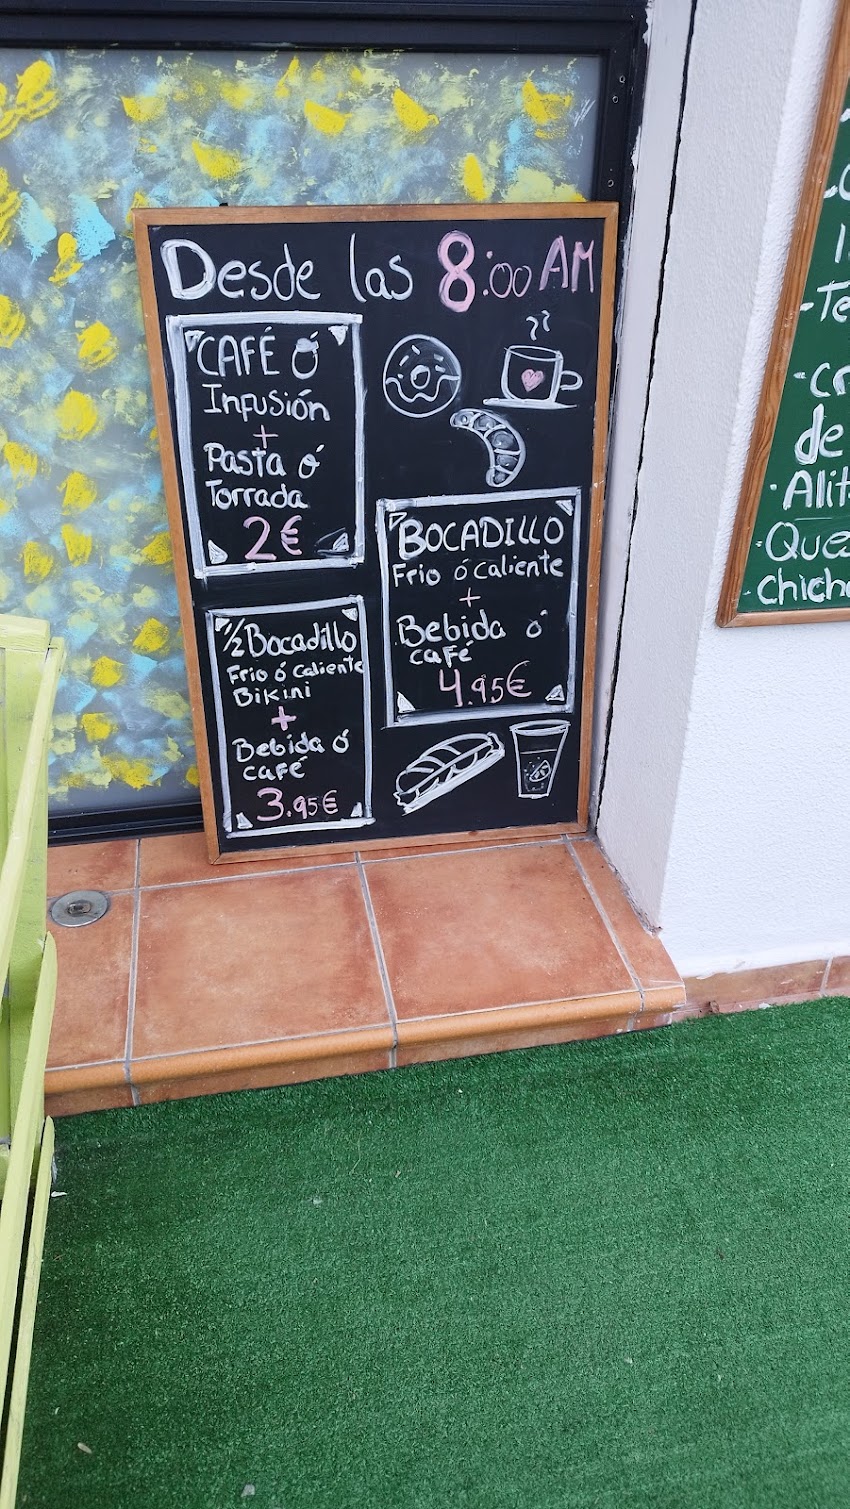 Desde las 8:00 AM
CAFÉ ó
Infusión
+
Pasta ó
Torrada
2€
BOCADILLO
Frio ó caliente
+
Bebida ó
café
4.95€
1/2 Bocadillo
Frio ó caliente
Bikini
+
Bebida ó
café
3.95€
de